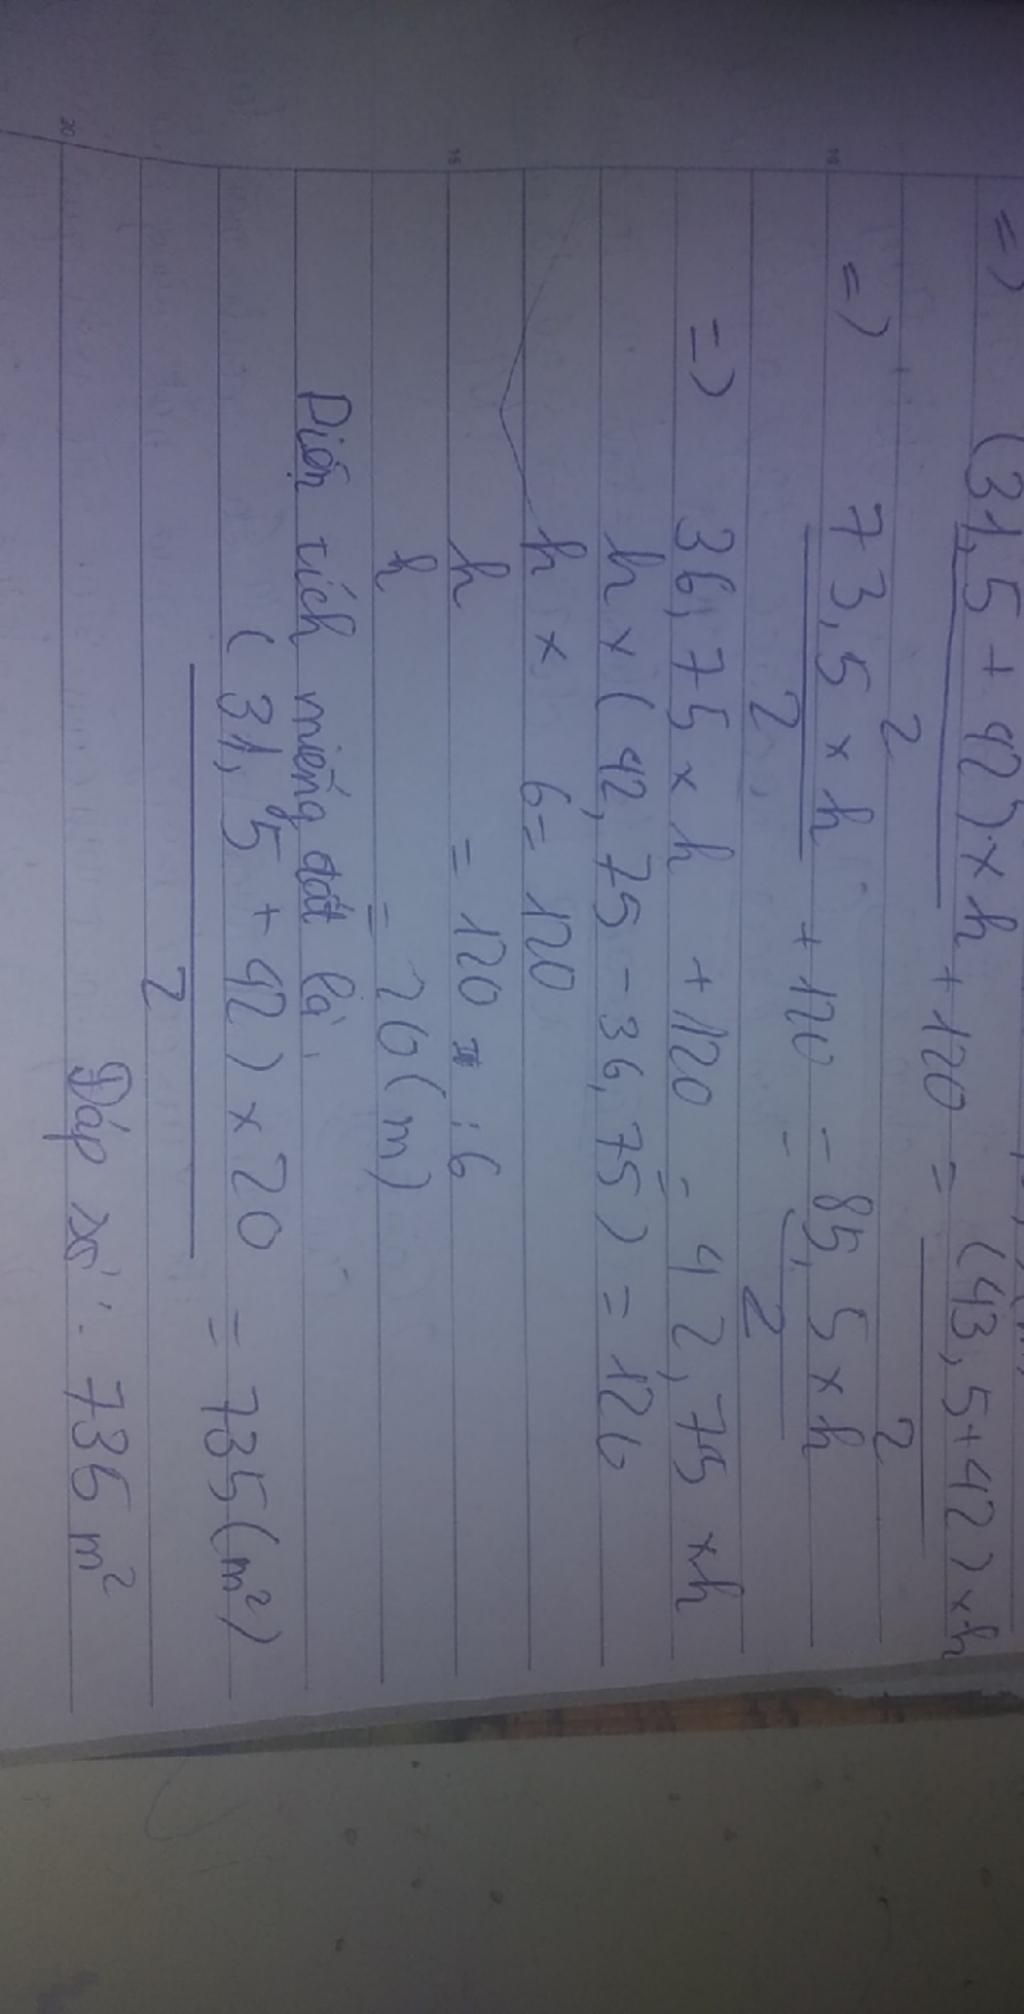 => (31,5 + 42) x h + 120 = (43,5 + 42) x h
2 2
=> 73,5 x h + 120 = 85,5 x h
2 2
=> 36,75 x h + 120 = 42,75 x h
h x (42,75 - 36,75) = 120
h x 6 = 120
h = 120 : 6
h = 20 (m)
Diện tích miếng đất là
(31,5 + 42) x 20 = 735 (m²)
2
Đáp số: 735 m²
10
15
20